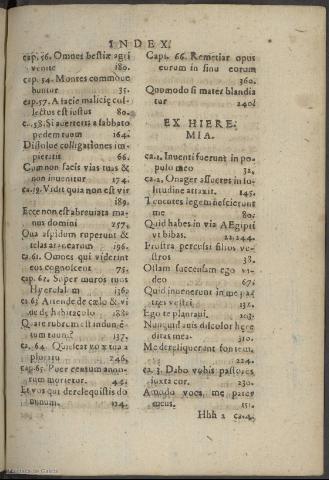 INDEX.
cap. 56. Omnes bestiæ agri
venite 180.
cap. 54. Montes commoue
buntur 35.
cap. 57. A facie maliciæ col-
lectus est iustus 80.
c. 58. Si auerteris a sabbato
pedem tuum 164.
Dissolue colligationes im-
pietatis 66.
Cum non facis vias tuas &
non inuenitur 174.
ca. 59. Vidit quia non est vir
189.
Ecce non est abreuiata ma-
nus domini 257.
Oua aspidum ruperunt &
telas aranearum 196.
ca. 61. Omnes qui viderint
eos cognoscent 75.
cap. 62. Super muros tuos
Hyerusalem 136.
ca. 63 Attende de cælo & vi
de de habitaculo 188.
Quare rubrum est indumē-
tum tuum 137.
ca. 64. Quasi
246.
cap. 65. Puer centum anno-
rum morietur.
Et vos qui dereliquistis do
minum. 124.
Capi. 66. Remetiar opus
eorum in sinu eorum
360.
Quomodo si mater blandia
tur 240.
EX HIERE
MIA.
ca. 2. Inuenti fuerunt in po
pulo meo 32.
ca. 2. Onager assuetus in so-
litudine attraxit. 145.
Tenentes legem nescierunt
me 80.
Quid habes in via AEgipti
vt bibas. 22. 244.
Frustra percussi filios ve-
stros 38.
Ollam succensam ego vi-
deo 67.
Quid inuenerunt in me pa-
tres vestri 132.
Ego te plantaui. 103.
Nunquid auis discolor here
ditas mea 310.
Me dereliquerunt fontem.
224.
ca. 3. Dabo vobis pastores
iuxta cor. 230.
Amodo voca me pater
meus. 151.
Hhh 2 ca. 4.